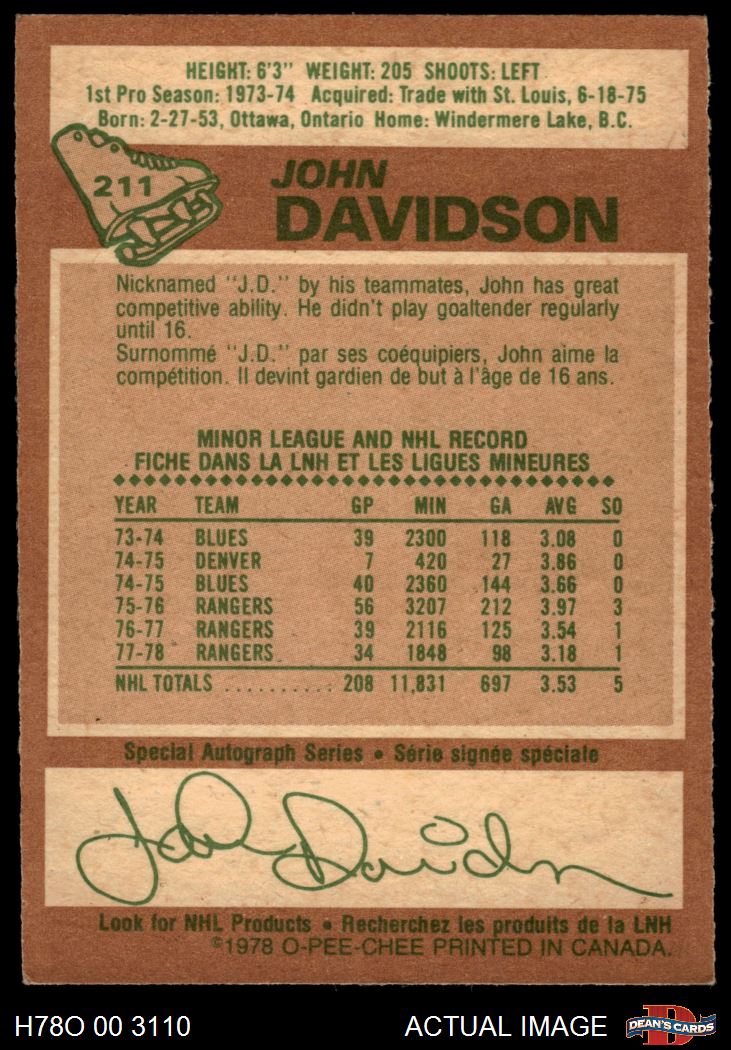 HEIGHT: 6'3" WEIGHT: 205 SHOOTS: LEFT
1st Pro Season: 1973-74 Acquired: Trade with St. Louis, 6-18-75
Born: 2-27-53, Ottawa, Ontario Home: Windermere Lake, B.C.
211
JOHN
DAVIDSON
Nicknamed "J.D." by his teammates, John has great
competitive ability. He didn't play goaltender regularly
until 16.
Surnommé "J.D." par ses coéquipiers, John aime la
compétition. Il devint gardien de but à l'âge de 16 ans.
MINOR LEAGUE AND NHL RECORD
FICHE DANS LA LNH ET LES LIGUES MINEURES
YEAR TEAM GP MIN GA AVG SO
73-74 BLUES 39 2300 118 3.08 0
74-75 DENVER 7 420 27 3.86 0
74-75 BLUES 40 2360 144 3.66 0
75-76 RANGERS 56 3207 212 3.97 3
76-77 RANGERS 39 2116 125 3.54 1
77-78 RANGERS 34 1848 98 3.18 1
NHL TOTALS .......... 208 11,831 697 3.53 5
Special Autograph Series • Série signée spéciale
John Davidson
Look for NHL Products • Recherchez les produits de la LNH
©1978 O-PEE-CHEE PRINTED IN CANADA.
H78O 00 3110 ACTUAL IMAGE DEAN'S CARDS